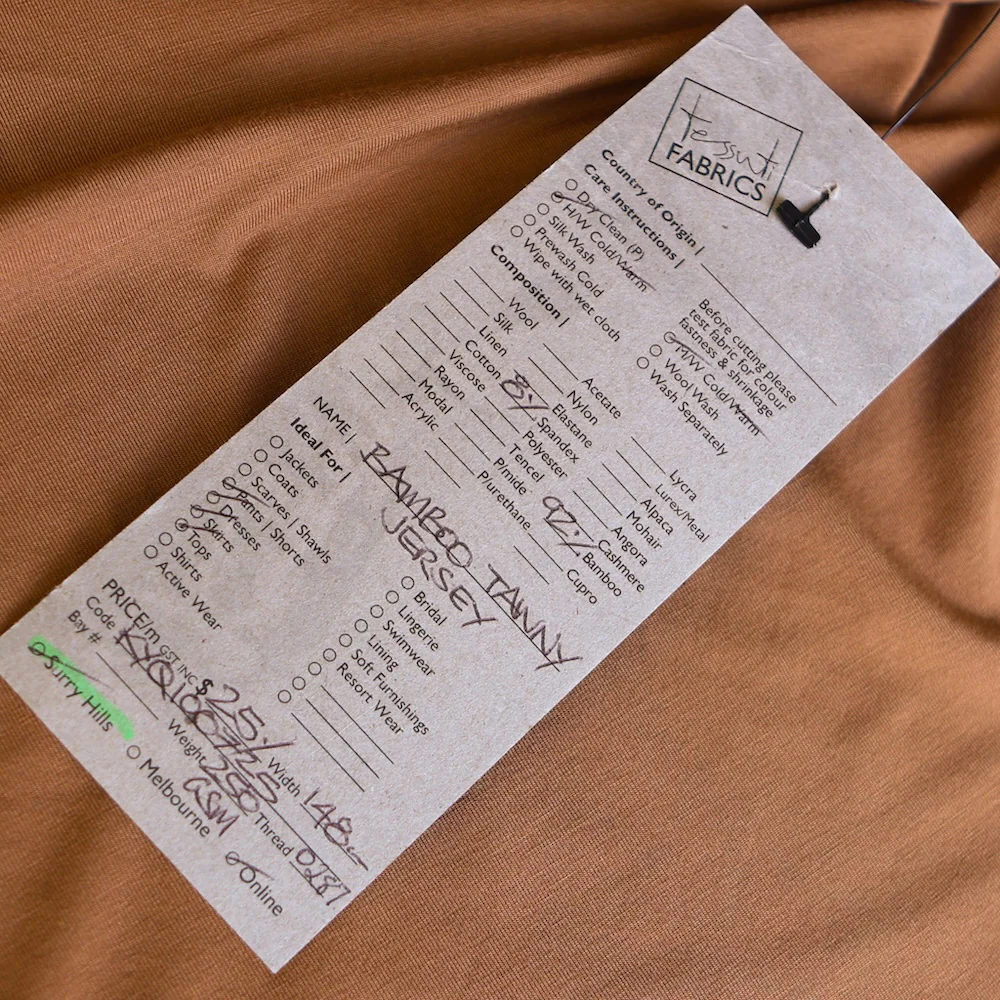 tessuti
FABRICS
Country of Origin |
Care Instructions |
Dry Clean (P)
H/W Cold/Warm
Silk Wash
Prewash Cold
Wipe with wet cloth
Before cutting please
test fabric for colour
fastness & shrinkage
M/W Cold/Warm
Wool Wash
Wash Separately
Composition |
Wool
Silk
Linen
Cotton
Viscose
Rayon
Modal
Acrylic
Acetate
Nylon
Elastane
8% Spandex
Polyester
Tencel
P/mide
P/urethane
Lycra
Lurex/Metal
Alpaca
Mohair
Angora
Cashmere
92% Bamboo
Cupro
NAME | BAMBOO TAWNY
JERSEY
Ideal For |
Jackets
Coats
Scarves | Shawls
Pants | Shorts
Dresses
Skirts
Tops
Shirts
Active Wear
Bridal
Lingerie
Swimwear
Lining
Soft Furnishings
Resort Wear
PRICE/m GST INC $25./ Width 148
Code Weight 250 GSM Thread 0287
Bay #
Surry Hills
Melbourne
Online